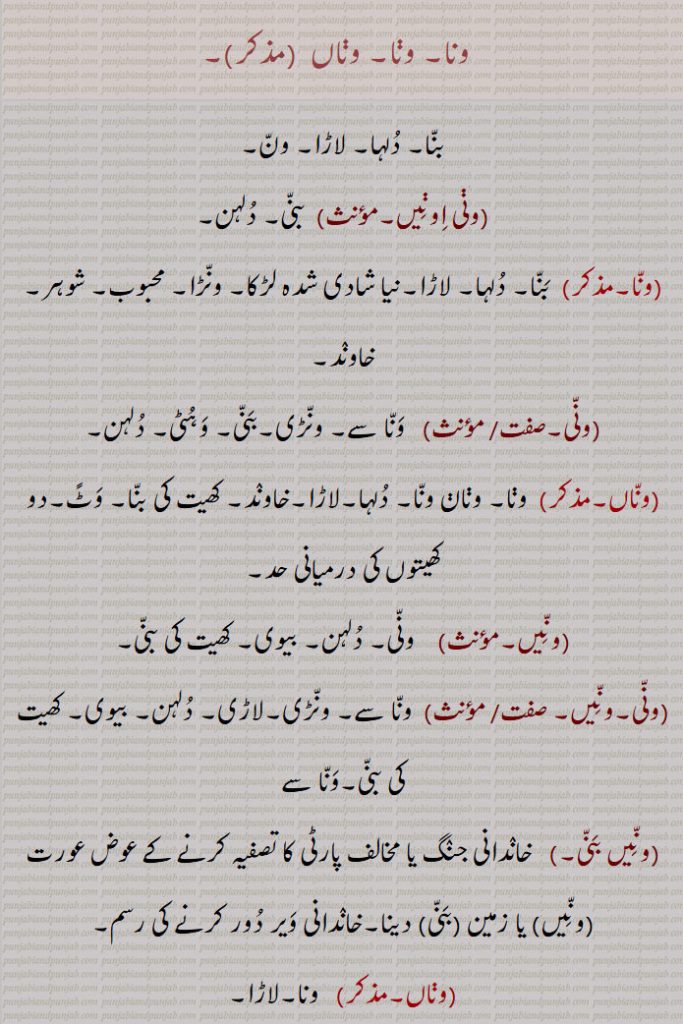 ونا۔ وݨا۔ وݨاں (مذکر)۔
بنّا۔ دُلہا۔ لاڑا۔ ونّ۔
(وݨی اِوݨِیں۔مؤنث) بنّی۔ دُلہن۔
(ونّا۔مذکر) بَنّا۔ دُلہا۔ لاڑا۔نیا شادی شدہ لڑکا۔ ونّڑا۔ محبوب۔ شوہر۔
خاوند۔
(ونّی۔صفت/ مؤنث) وَنّا سے۔ ونّڑی۔بَنّی۔ وَہُٹی۔ دُلہن۔
(ونّاں۔مذکر) وݨا۔ وݨاں ونّا۔ دُلہا۔لاڑا۔خاوند۔ کھیت کی بنّا۔ وَٹّ۔دو
کھیتوں کی درمیانی حد۔
(ونّیں۔مؤنث) ونّی۔ دُلہن۔ بیوی۔ کھیت کی بنّی۔
(ونّی۔ونّیں۔ صفت/ مؤنث) ونّا سے۔ ونّڑی۔لاڑی۔ دُلہن۔ بیوی۔ کھیت
کی بنّی۔وَنّا سے
(ونّیں بَنّی۔) خاندانی جنگ یا مخالف پارٹی کا تصفیہ کرنے کے عوض عورت
(ونّیں) یا زمین (بَنّی) دینا۔خاندانی وَیر دُور کرنے کی رسم۔
(وݨاں۔مذکر) ونا۔لاڑا۔